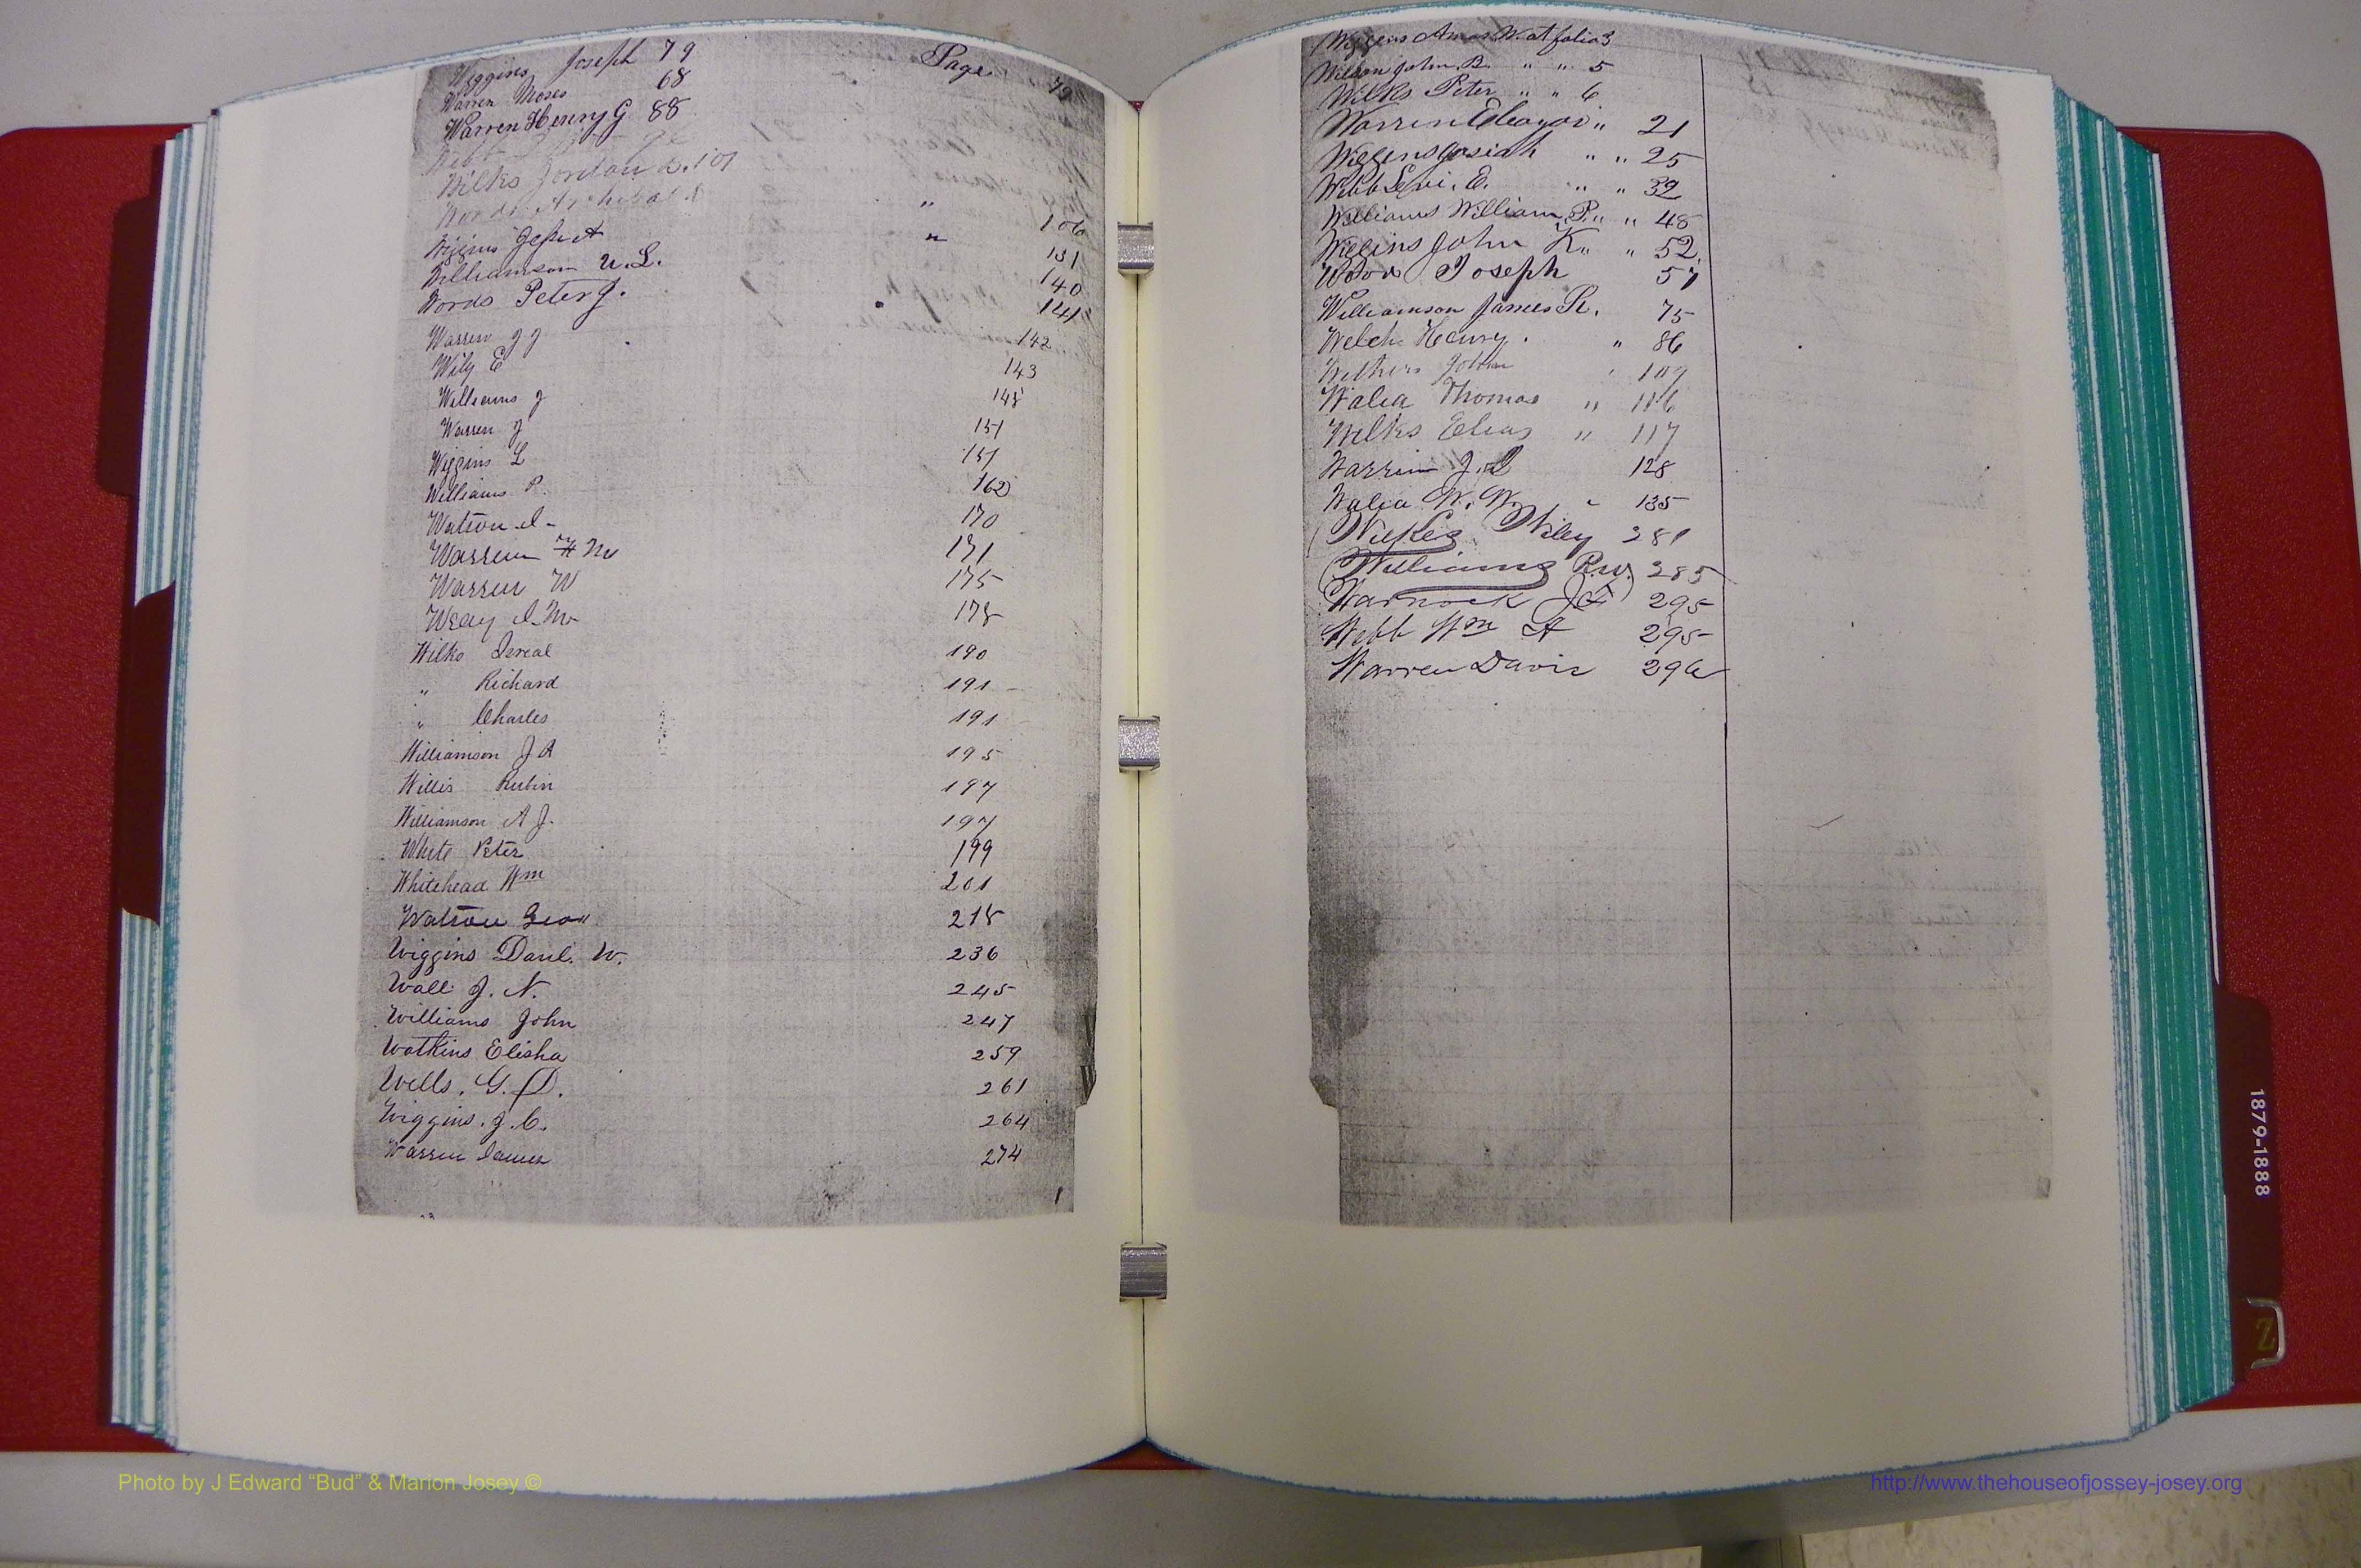 Wiggins Joseph 79 Page
Warren Moses 68 79
Warren Henry G 88
Webb
Wilks Jordan D. 107
Words Archibald "
Wiggins " 106
Williamson U.L. 131
Words Peter J. 140
141
Warren J J 142
Wily E 143
Williams J 148
Warren J 151
Wiggins L 151
Williams P. 162
Watson 170
Warren M 171
Warren W 175
178
Wilks Isreal 190
" Richard 191
" Charles 191
Williamson J R 195
Willis Rubin 197
Williamson A J. 197
White Peter 199
Whitehead Wm 201
Watson Geo 218
Wiggins Danl. W. 236
Wall J. N. 245
Williams John 247
Watkins Elisha 259
Wells, G. D. 261
Wiggins. J. C. 264
Warren James 274
Wiggins Amos W. at folio 3
Wilson John B. " " 5
Wilks Peter " " 6
Warren " 21
Wiggins Josiah " " 25
Webb Levi. E. " " 39
Williams William P. " " 48
Wiggins John K " " 52
Wood Joseph 57
Williamson James R. 75
Welch Henry. " 86
Withers John " 109
Walea Thomas " 116
Wilks Elias " 117
Warren J. L 128
Walea W. W. " 135
Wilkes. Wiley 281
Williams R.W. 285
Warnock J F 295
Webb Wm A 295
Warren Davis 296
1879-1888
Z
Photo by J Edward “Bud” & Marion Josey ©
http://www.thehouseofjossey-josey.org